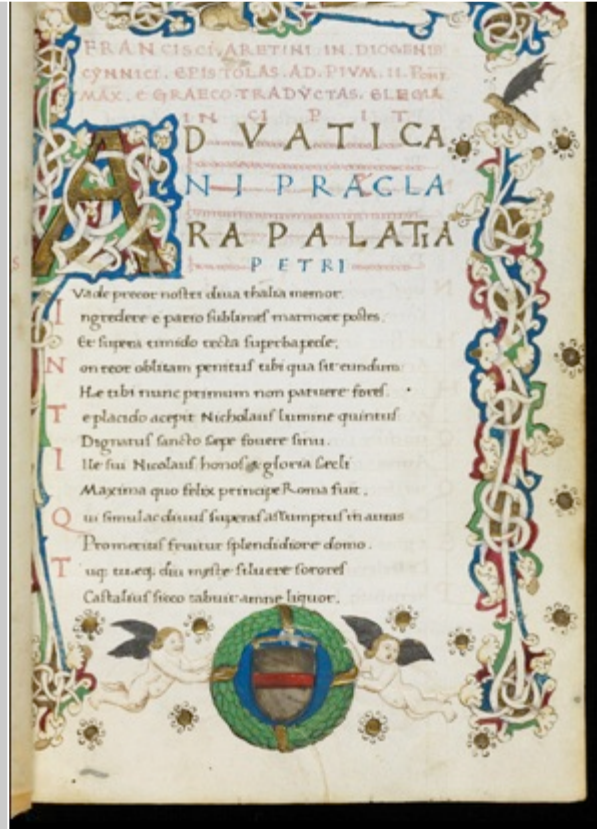 FRANCISCI. ARETINI. IN. DIOGENIS
CYNNICI. EPISTOLAS. AD. PIVM. II. Pont
MAX. E GRAECO. TRADVCTAS. ELEGIA
INCIPIT
AD VATICA
NI PRAECLA
RA PALATIA
PETRI
Vade precor nostri diua thalia memor.
Ingredere e pario sublimes marmore postes,
Et supera timido tecta superba pede,
Non reor oblitam penitus tibi qua sit eundum
Hae tibi nunc primum non patuere fores.
Te placido acepit Nicholaus lumine quintus
Dignatus sancto sepe fouere sinu.
Ille sui Nicolaus honos & gloria secli
Maxima quo felix principe Roma fuit.
Qui simul ac diuus superas assumptus in auras
Pro meritis fruitur splendidiore domo.
Tuq. tueq. diu meste siluere sorores
Castalius sicco tabuit amne liquor.